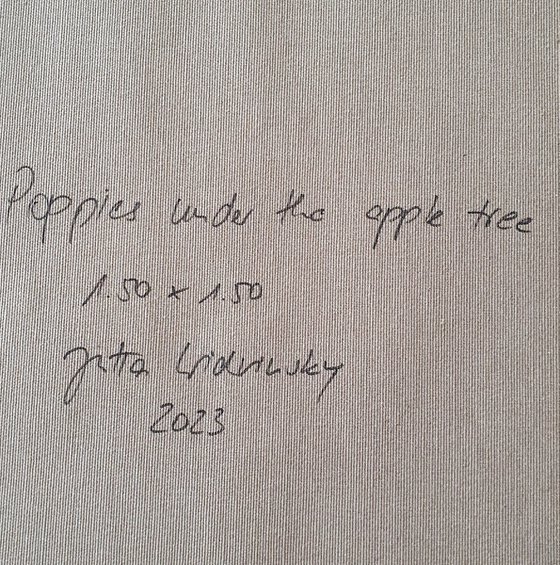 Poppies under the apple tree
1.50 x 1.50
Jutta
2023